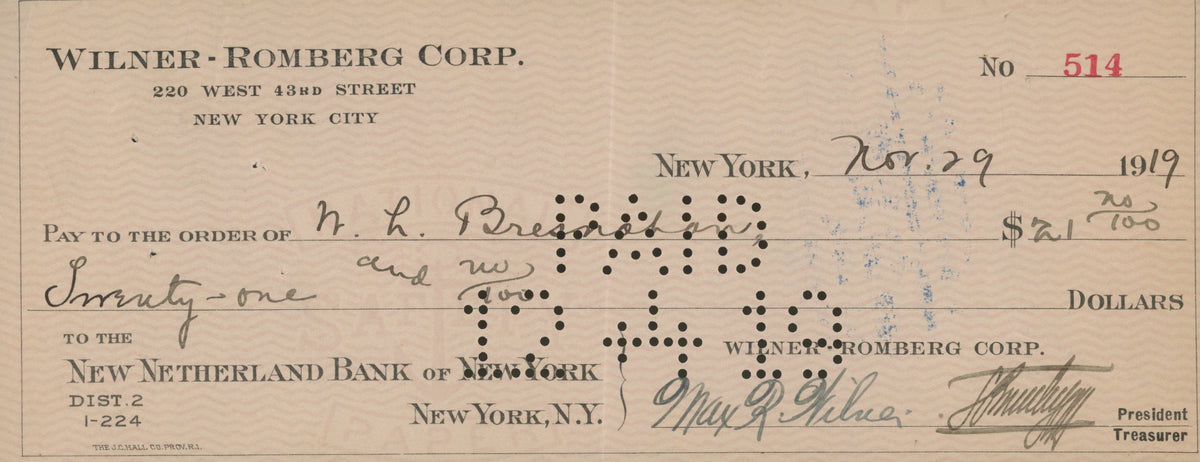 WILNER-ROMBERG CORP.
220 WEST 43RD STREET
NEW YORK CITY
No 514
NEW YORK, Nov. 29 1919
PAY TO THE ORDER OF W. L. Bresnahan, $21 no/100
Twenty-one and no/100 DOLLARS
PAID
12 4 19
TO THE
NEW NETHERLAND BANK OF NEW YORK
NEW YORK, N.Y.
DIST. 2
1-224
WILNER-ROMBERG CORP.
Max R. Wilner
President
Treasurer
THE J.C. HALL CO. PROV. R.I.